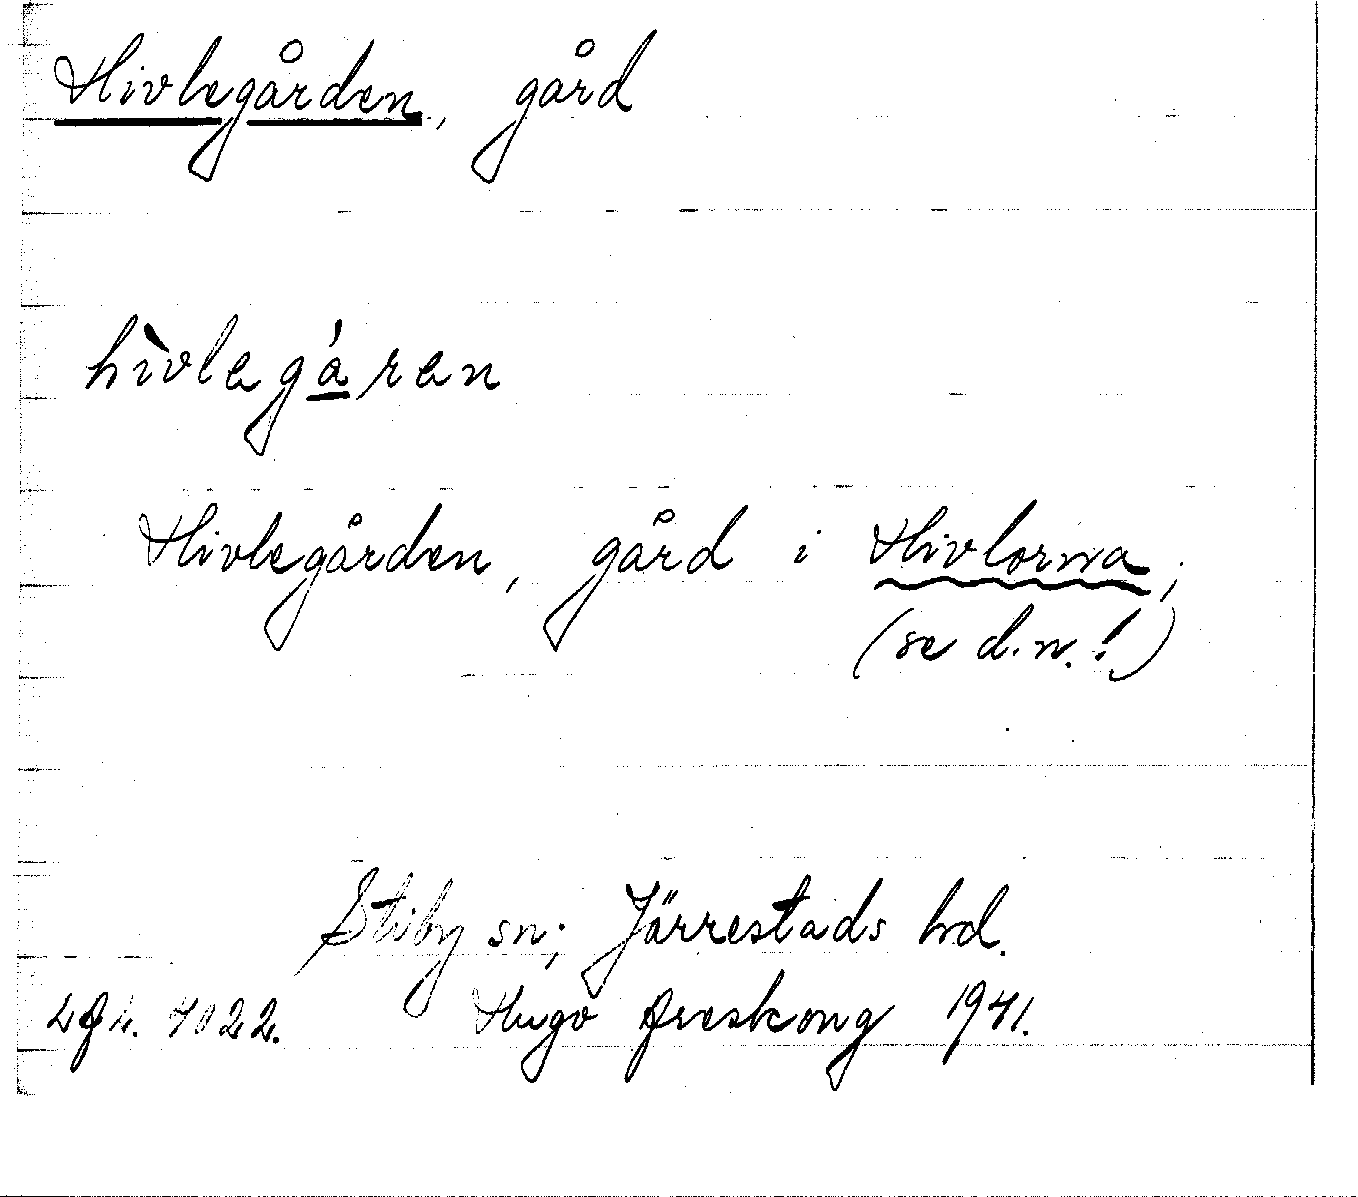 Hivlegården, gård
hìvlegá̱ren
Hivlegården, gård i Hivlorna;
(se d.n.!)
Stiby sn; Järrestads hd.
Hugo Areskoug 1941.